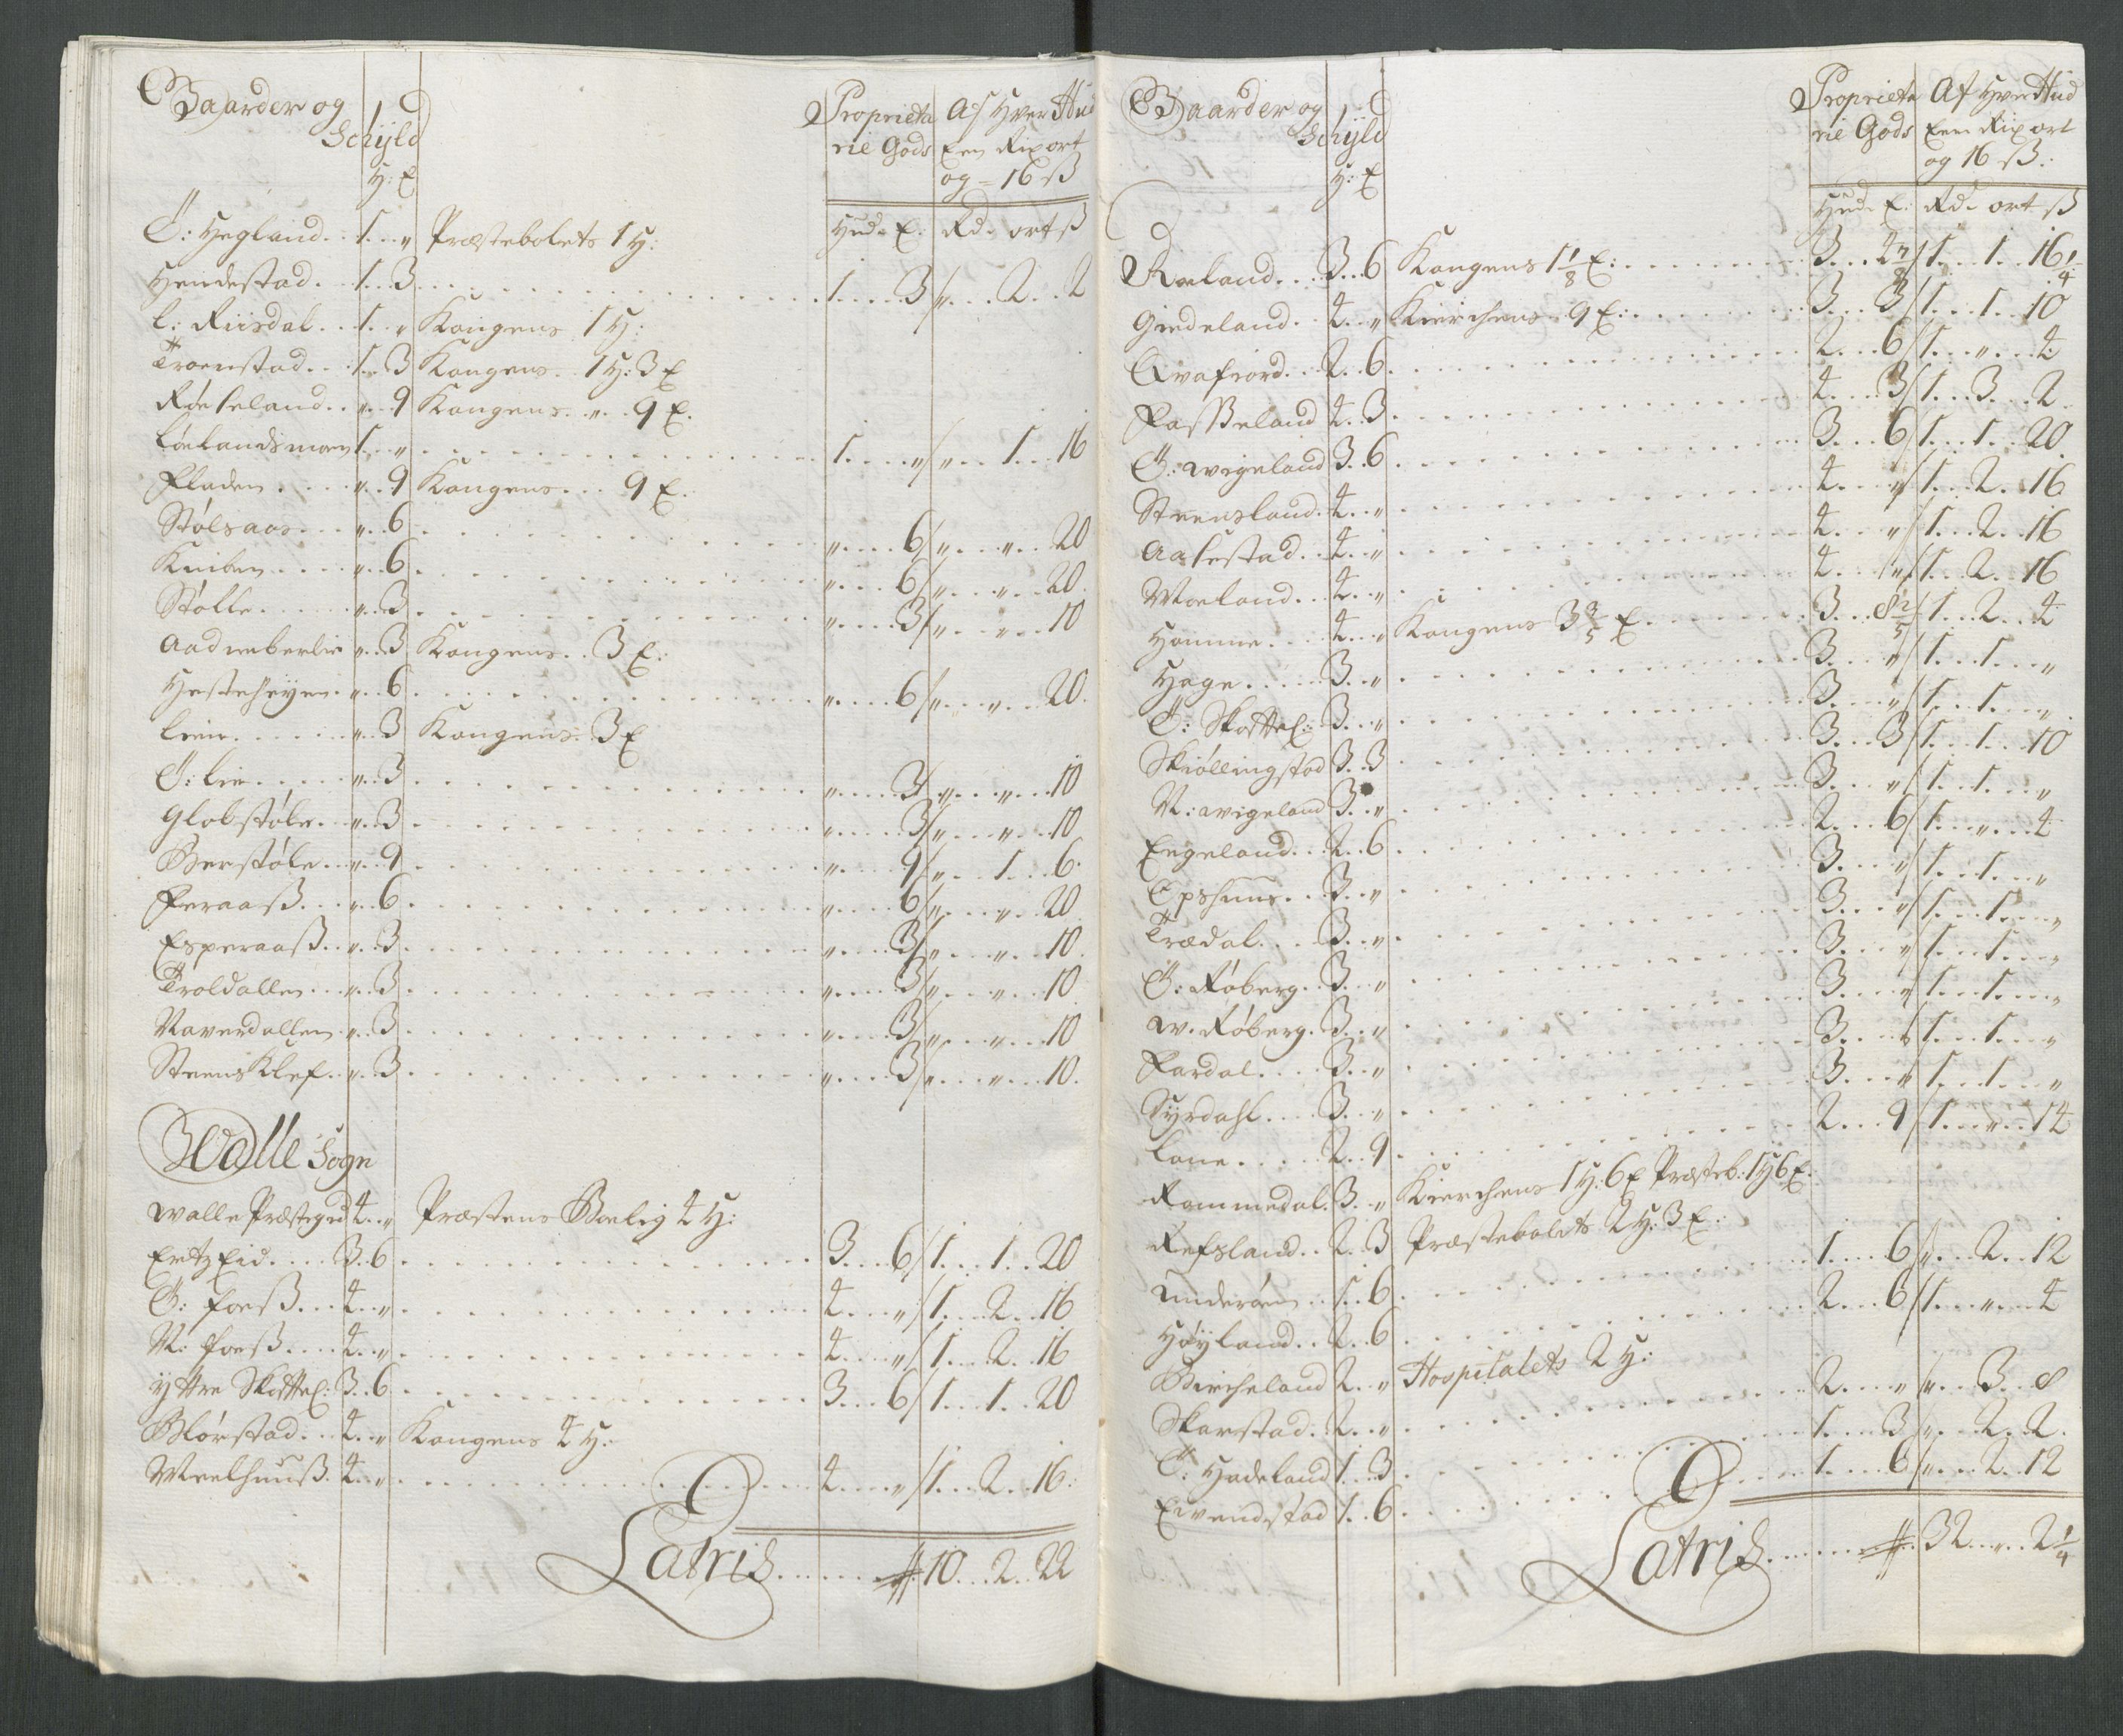 Gaarder og
Schyld
H: E
Proprieta
rie Gods
Af Hver Hud
Een Rix ort
og = 16 ß
Hud. E. Rd. ort ß
Ö: Hegland . . 1 . . „ Præstebolets 1 H:
Hendestad . 1 . . 3 . . . 1 . . . . 3 / „ . . . 2 . . 2
l: Riisdal . . 1 . . „ Kongens 1 H:
Troenstad . . 1 . . 3 Kongens . . 1 H: 3 E
Røeseland . . „ . . 9 Kongens . „ . . 9 E.
Løelandsmoen 1 . . „ . . . 1 . . . . „ / „ . . . 1 . . . 16
Fladen . . . . „ . . 9 Kongens . . . 9 E.
Stølsaas . . . „ . . 6 . . . „ . . . . 6 / „ . . . „ . . 20
Kniben . . . . „ . . 6 . . . „ . . . . 6 / „ . . . „ . . 20.
Stølle . . . . . „ . . 3 . . . „ . . . . 3 / „ . . . „ . . 10
Aadneberlie „ . . 3 Kongens . . 3 E:
Hestehejen . „ . . 6 . . . „ . . . . 6 / „ . . . „ . . . 20.
Lien . . . . . „ . . 3 Kongens . 3 E
Ö: Lie . . . . „ . . 3 . . . „ . . . . 3 / „ . . . „ . . . 10
Globstøle . . „ . . 3 . . . „ . . . . 3 / „ . . . „ . . . 10
Berstøle . . „ . . 9 . . . „ . . . . 9 / „ . . . 1 . . . 6.
Feraaß . . . „ . . 6 . . . „ . . . . 6 / „ . . . „ . . 20.
Esperaaß . . „ . . 3 . . . „ . . . . 3 / „ . . . „ . . 10.
Troldallen . . „ . . 3 . . . „ . . . . 3 / „ . . . „ . . 10.
Naverdallen . „ . . 3 . . . „ . . . . 3 / „ . . . „ . . . 10
Steensklef . . „ . . 3 . . . „ . . . . 3 / „ . . . „ . . . 10.
Walle Sogn
Walle Præstegrd 4 . . „ Præstens Boelig 4 H:
Ertzeid . . . . 3 . . 6 . . . 3 . . . 6 / 1 . . . 1 . . 20
Ö: foeß . . . 4 . . „ . . . 4 . . . . „ / 1 . . . 2 . . 16
N: foeß . . . . 4 . . „ . . . 4 . . . . „ / 1 . . . 2 . . 16
Yttre Skottel: 3 . . 6 . . . 3 . . . 6 / 1 . . . 1 . . 20
Blørstad . . . 4 . . „ Kongens 4 H:
Meelhuuß . 4 . . „ . . . 4 . . . . „ / 1 . . . 2 . . 16:
Latris . . . . . . 10 . . . 2 . . 22
Gaarder og
Schyld
H: E
Proprieta
rie Gods
Af Hver Hud
Een Rix ort
og 16 ß.
Hud. E. Rd. ort ß
Røeland . . . 3 . . 6 Kongens 1 1/8 E: . . . 3 . . . 4 7/8 / 1 . . . 1 . . 16 1/4
Giedeland . 4 . . „ Kierchens . 9 E: . . . 3 . . . 3 / 1 . . . 1 . . 10
Qvafiord . . 2 . . 6 . . . 2 . . . 6 / 1 . . . „ . . . 4
Faßßeland 4 . . 3 . . . 4 . . . 3 / 1 . . . 3 . . . 2
Ö: Wigeland 3 . . 6 . . . 3 . . . 6 / 1 . . . 1 . . 20.
Steensland . 4 . . „ . . . 4 . . . „ / 1 . . . 2 . . 16
Aasestad . . 4 . . „ . . . 4 . . . „ / 1 . . . 2 . . 16
Moeland . . 4 . . „ . . . 4 . . . „ / 1 . . . 2 . . 16
Homme . . . 4 . . „ Kongens 3 3/5 E . . . 3 . . . 8 2/5 / 1 . . . 2 . . . 4
Hage . . . . 3 . . „ . . . 3 . . . „ / 1 . . . 1 . . . „
Ö: Skottel: 3 . . „ . . . 3 . . . „ / 1 . . . 1 . . . „
Skiøllingstad 3 . . 3 . . . 3 . . . 3 / 1 . . . 1 . . 10
N: Wigeland 3 . . „ . . . 3 . . . „ / 1 . . . 1 . . . „
Engeland . . 2 . . 6 . . . 2 . . . 6 / 1 . . . „ . . . 4
Opshuus . . . 3 . . „ . . . 3 . . . „ / 1 . . . 1 . . . „
Trædal . . . . 3 . . „ . . . 3 . . . „ / 1 . . . 1 . . . „
Ö: Røberg . 3 . . „ . . . 3 . . . „ / 1 . . . 1 . . . „
W. Røberg . 3 . . „ . . . 3 . . . „ / 1 . . . 1 . . . „
Fardal . . . . 3 . . „ . . . 3 . . . „ / 1 . . . 1 . . . „
Syrdahl . . . 3 . . „ . . . 3 . . . „ / 1 . . . 1 . . . „
Lone . . . . . 2 . . 9 . . . 2 . . . 9 / 1 . . . „ . . 14
Rommedal . 3 . . „ Kierchens 1 H: 6 E Præsteb: 1 H 6 E:
Refsland . . 2 . . 3 Præstebolets 2 H: 3 E:
Underøen . . 1 . . 6 . . . 1 . . . 6 / „ . . . 2 . . 12
Høyland . . 2 . . 6 . . . 2 . . . 6 / 1 . . . „ . . . 4
Bircheland 2 . . „ Hospitalets 2 H:
Skarstad . 2 . . „ . . . 2 . . . „ / „ . . . 3 . . 8
Ö: Hadeland 1 . . 3 . . . 1 . . . 3 / „ . . . 2 . . 2.
Eivendstad 1 . . 6 . . . 1 . . . 6 / „ . . . 2 . . 12
Latris . . . . . . 32 . . „ . . 2 1/4